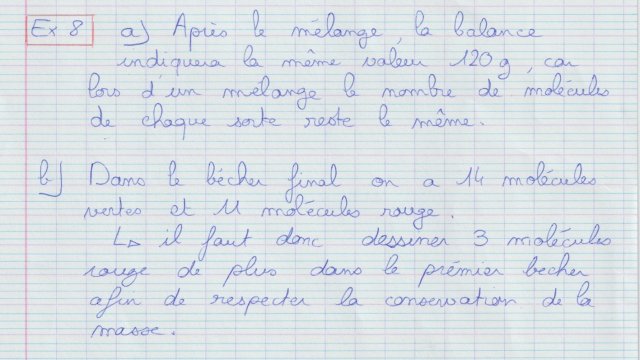 Ex 8 a) Après le mélange, la balance
indiquera la même valeur 120g, car
lors d'un mélange le nombre de molécules
de chaque sorte reste le même.
b) Dans le bécher final on a 14 molécules
vertes et 11 molécules rouge.
↳ il faut donc dessiner 3 molécules
rouge de plus dans le prémier becher
afin de respecter la conservation de la
masse.